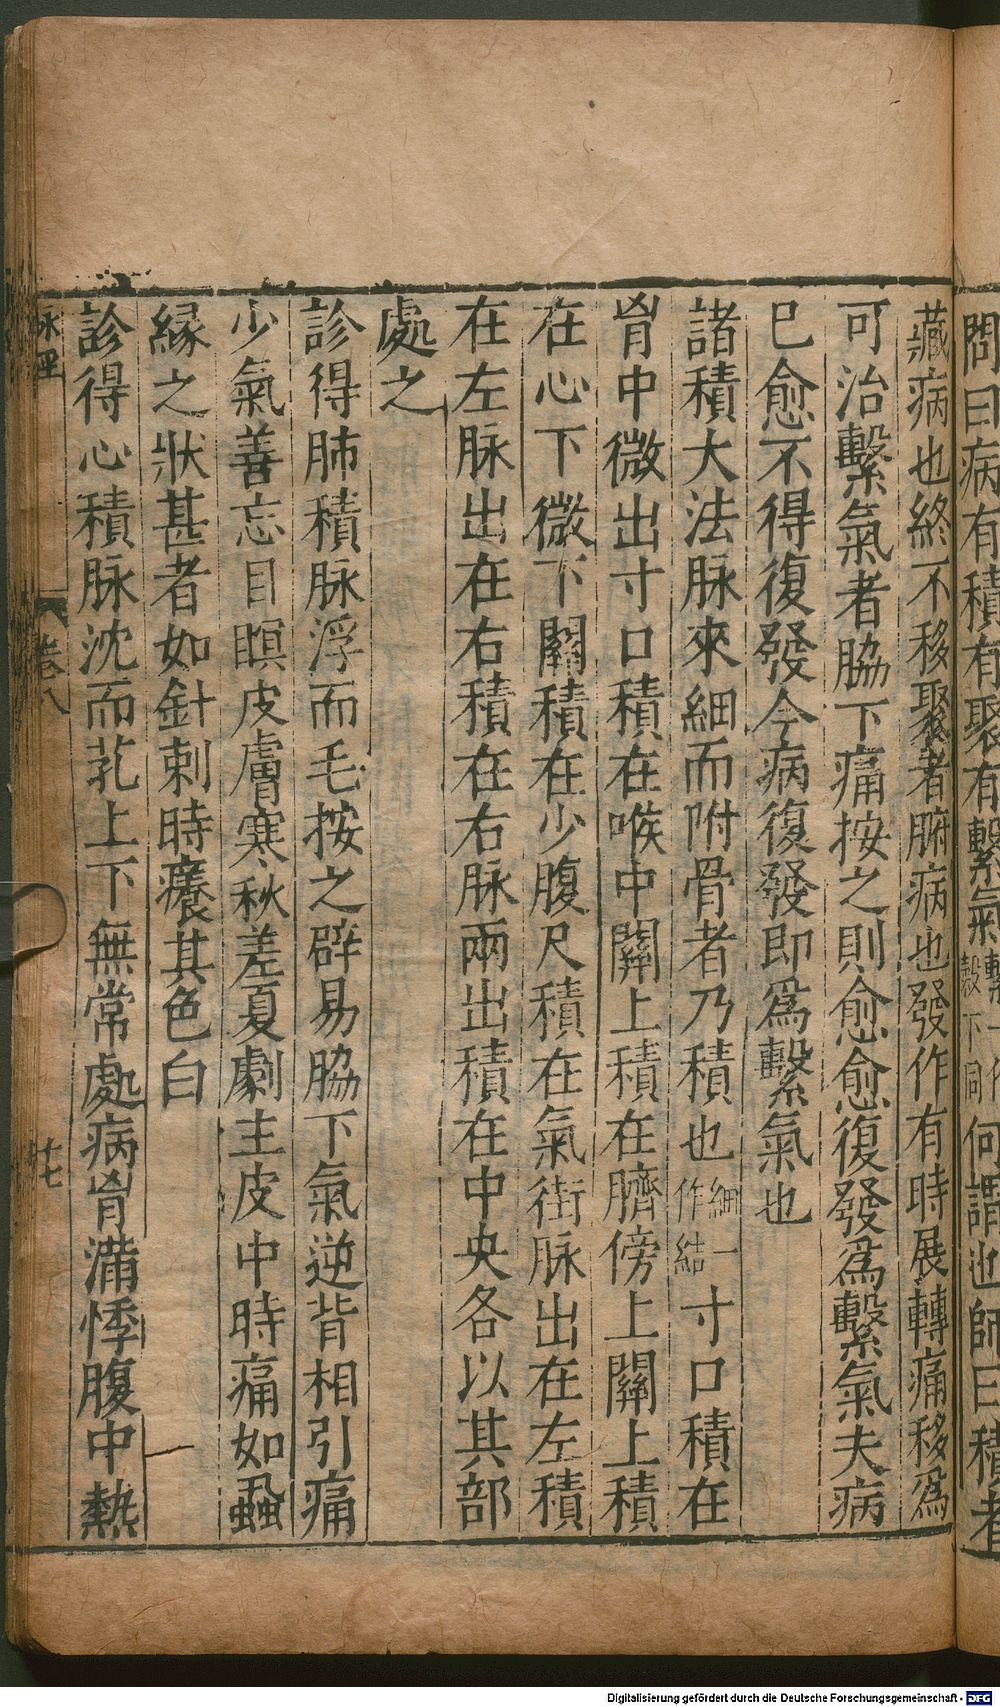 問曰病有積有聚有繫氣繫一作穀下同何謂也師曰積者
藏病也終不移聚者腑病也發作有時展轉痛移爲
可治繫氣者脇下痛按之則愈愈復發爲繫氣夫病
已愈不得復發今病復發即爲繫氣也
諸積大法脉來細而附骨者乃積也細一作結寸口積在
胷中微出寸口積在喉中關上積在臍傍上關上積
在心下微下關積在少腹尺積在氣街脉出在左積
在左脉出在右積在右脉兩出積在中央各以其部
處之
診得肺積脉浮而毛按之辟易脇下氣逆背相引痛
少氣善忘目瞑皮膚寒秋差夏劇主皮中時痛如蝨
縁之狀甚者如針刺時癢其色白
診得心積脉沈而芤上下無常處病胷滿悸腹中熱
脉經 卷八 十七
Digitalisierung gefördert durch die Deutsche Forschungsgemeinschaft - DFG